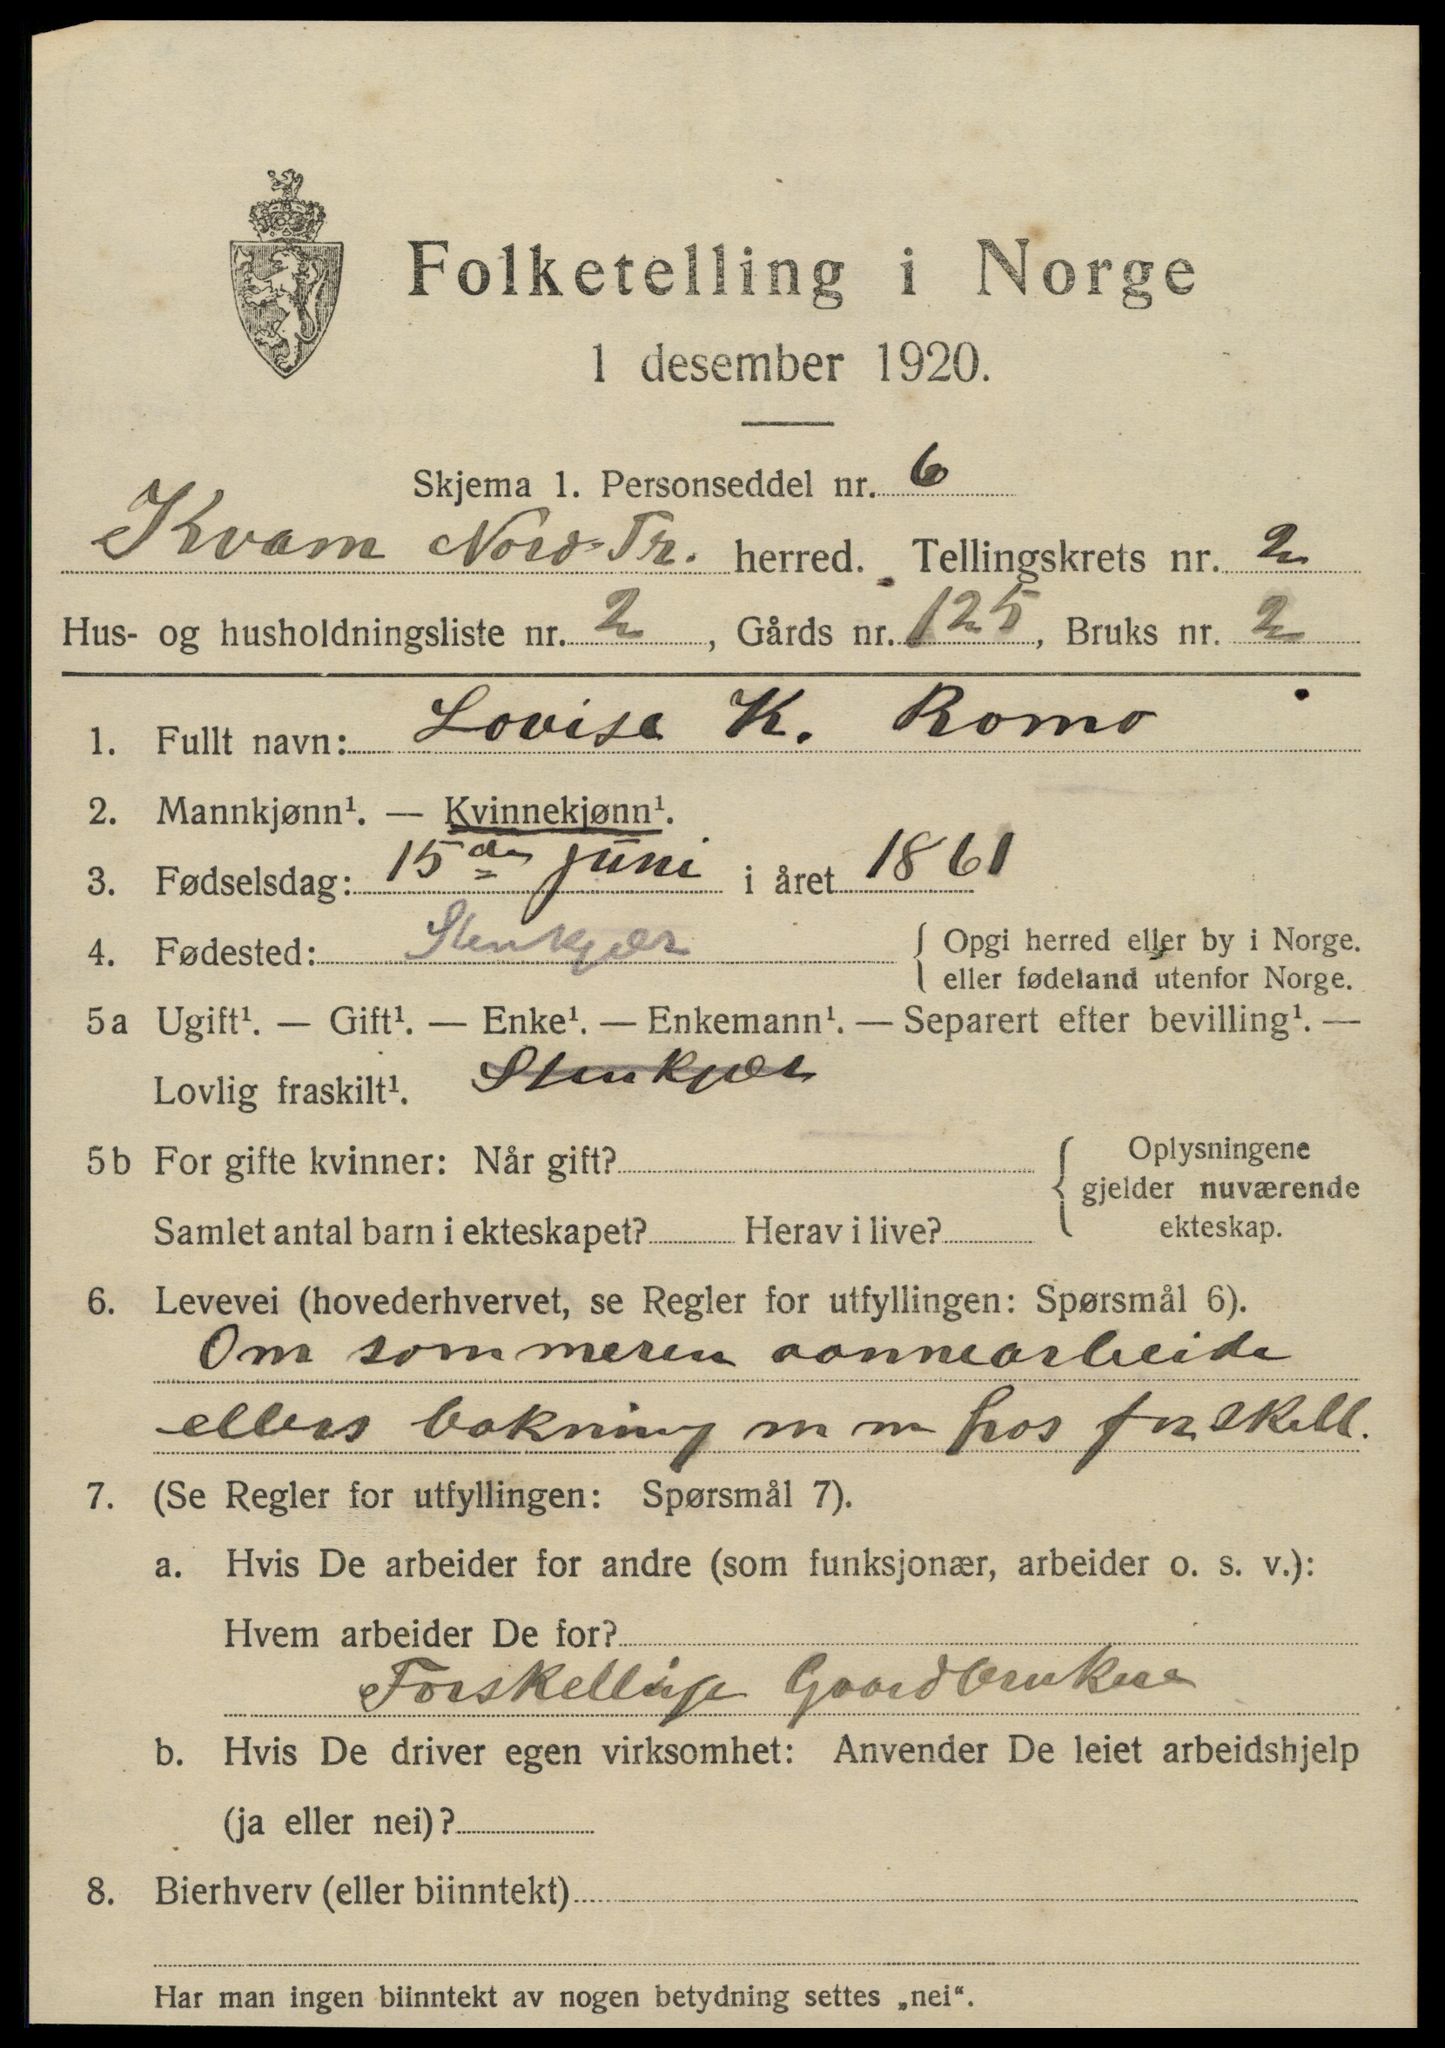 Folketelling i Norge
1 desember 1920.
Skjema 1. Personseddel nr. 6
Kvam Nord-Tr. herred. Tellingskrets nr. 2
Hus- og husholdningsliste nr. 2, Gårds nr. 125, Bruks nr. 2
1. Fullt navn: Lovise K. Romo
2. Mannkjønn¹. — Kvinnekjønn¹.
3. Fødselsdag: 15de juni i året 1861
4. Fødested: Stenkjær { Opgi herred eller by i Norge.
eller fødeland utenfor Norge.
5a Ugift¹. — Gift¹. — Enke¹. — Enkemann¹. — Separert efter bevilling¹. —
Lovlig fraskilt¹. Stenkjær
5b For gifte kvinner: Når gift?
Samlet antal barn i ekteskapet? Herav i live?
{ Oplysningene
gjelder nuværende
ekteskap.
6. Levevei (hovederhvervet, se Regler for utfyllingen: Spørsmål 6).
Om sommeren aannearbeide
ellers bakning m m hos forskell.
7. (Se Regler for utfyllingen: Spørsmål 7).
a. Hvis De arbeider for andre (som funksjonær, arbeider o. s. v.):
Hvem arbeider De for?
Forskellige Gaardbrukere
b. Hvis De driver egen virksomhet: Anvender De leiet arbeidshjelp
(ja eller nei)?
8. Bierhverv (eller biinntekt)
Har man ingen biinntekt av nogen betydning settes „nei“.